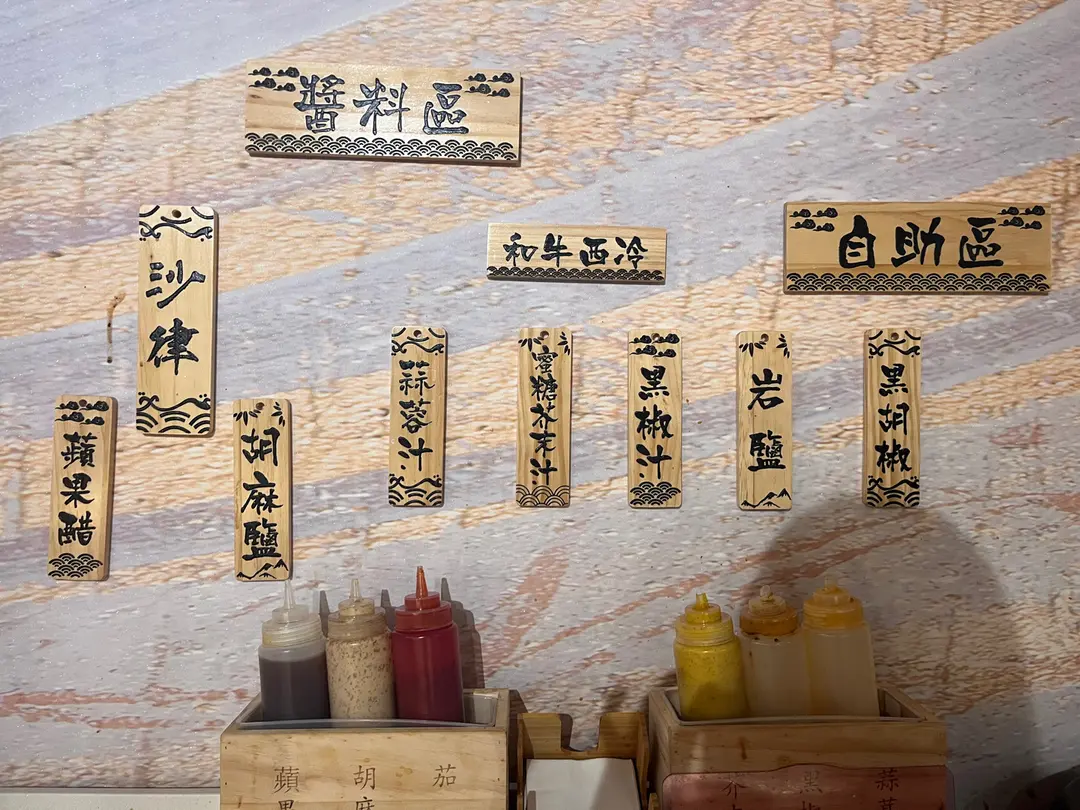 醬料區
自助區
和牛西冷
沙律
蘋果醋
胡麻鹽
蒜蓉汁
蜜糖芥末汁
黑椒汁
岩鹽
黑胡椒
蘋果
胡麻
茄
芥
黑椒
蒜蓉